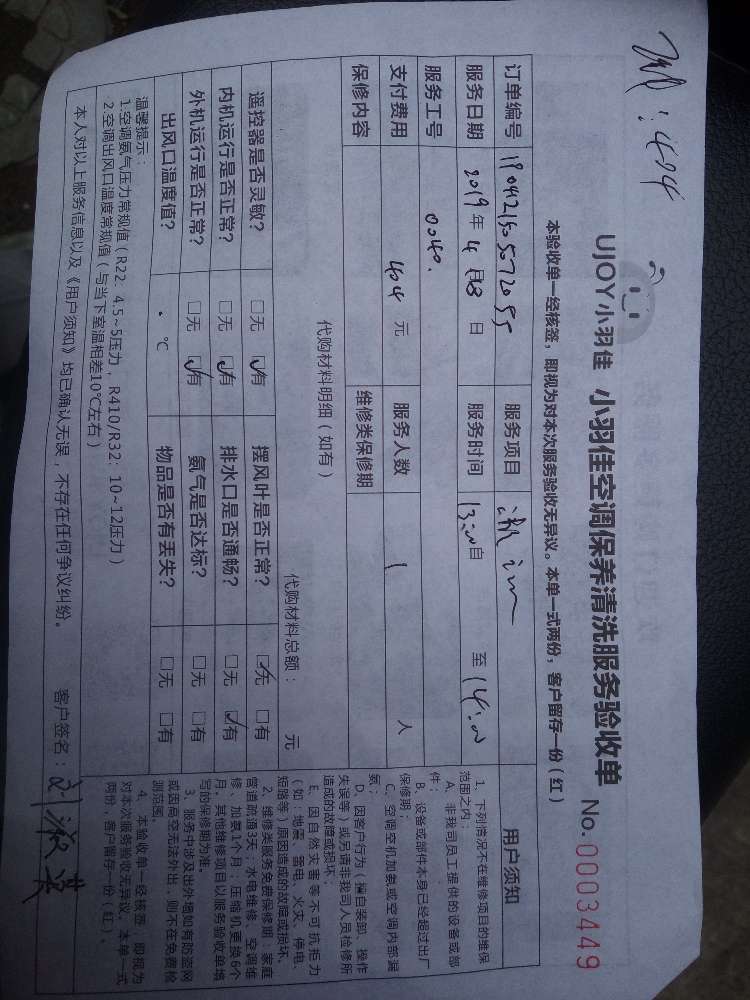 :404
UJOY小羽佳 小羽佳空调保养清洗服务验收单
No. 0003449
本验收单一经核签，即视为对本次服务验收无异议。本单一式两份，客户留存一份（红）
订单编号 服务项目
服务日期 2019年4月8日 服务时间 13:00自 至14:00
服务工号 0040.
支付费用 404元 服务人数 1 人
保修内容 维修类保修期
代购材料明细（如有）
代购材料总额： 元
遥控器是否灵敏？ □无 ☑有 摆风叶是否正常？ ☑无 □有
内机运行是否正常？ □无 ☑有 排水口是否通畅？ □无 ☑有
外机运行是否正常？ □无 ☑有 氨气是否达标？ □无 □有
出风口温度值？ ℃ 物品是否有丢失？ □无 □有
温馨提示：
1.空调氨气压力常规值（R22：4.5~5压力，R410/R32：10~12压力）
2.空调出风口温度常规值（与当下室温相差10℃左右）
本人对以上服务信息以及《用户须知》均已确认无误，不存在任何争议纠纷。 客户签名：
用户须知
1、下列情况不在维修项目的维保
范围之内：
A、非我司员工提供的设备或部
件；
B、设备或部件本身已经超过出厂
保修期；
C、空调空机加氨或空调内部漏
氨；
D、因客户行为（擅自装卸、操作
失误等）或另请非我司人员检修所
造成的故障或损坏；
E、因自然灾害等不可抗拒力
（如：地震、雷电、火灾、停电、
短路等）原因造成的故障或损坏。
2、维修类服务免费保修期：家庭
管道疏通3天；水电维修、空调维
修、加氨1个月；压缩机更换6个
月，其他维修项目以服务验收单填
写的保修期为准。
3、服务中涉及出外墙如有防盗网
或因高空无法外出，则不在免费检
测范围。
4、本验收单一经核签，即视为
对本次服务验收无异议。本单一式
两份，客户留存一份（红）。